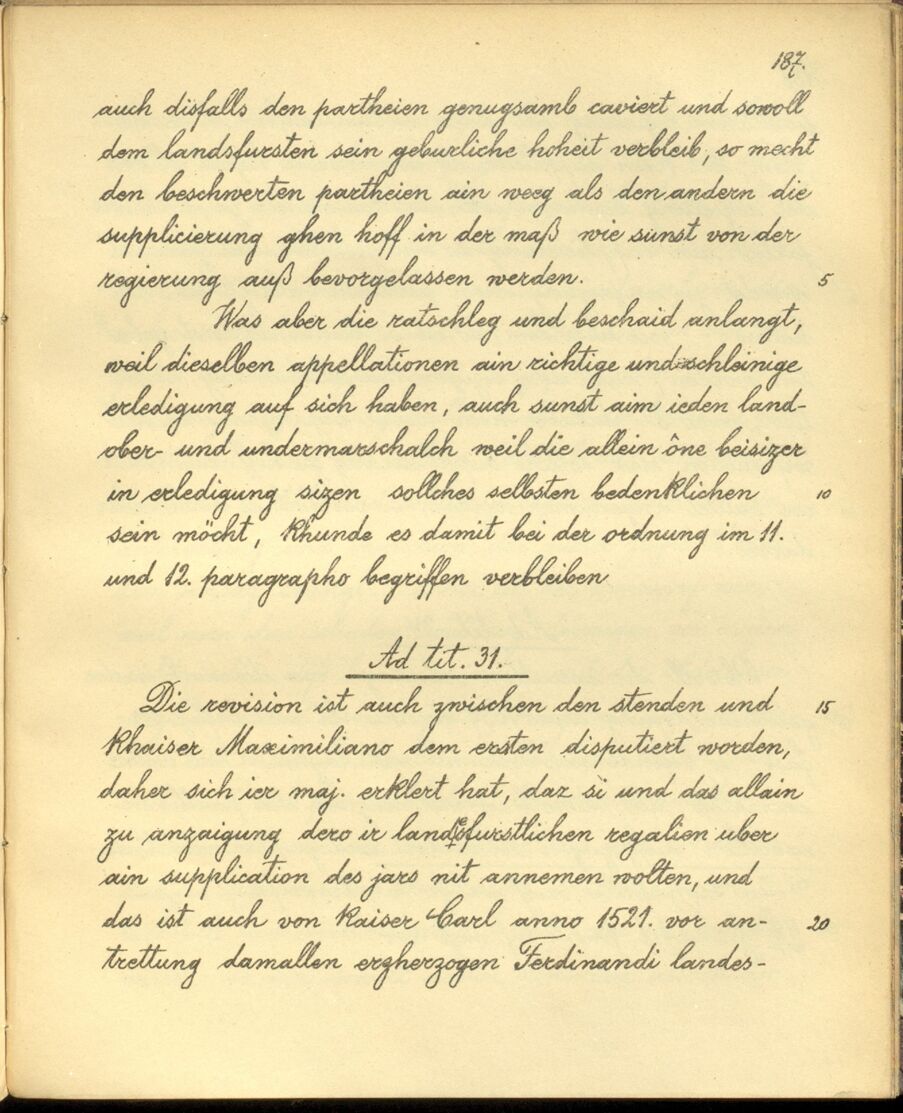 187.
auch disfalls den partheien genugsamb caviert und sowoll
dem landsfursten sein geburliche hoheit verbleib, so mecht
den beschwerten partheien ain weeg als den andern die
supplicierung ghen hoff in der maß wie sunst von der
regierung auß bevorgelassen werden. 5
Was aber die ratschleg und beschaid anlangt,
weil dieselben appellationen ain richtige und schleinige
erledigung auf sich haben, auch sunst aim ieden land-
ober- und undermarschalch weil die allein ône beisizer
in erledigung sizen sollches selbsten bedenklichen 10
sein möcht, khunde es damit bei der ordnung im 11.
und 12. paragrapho begriffen verbleiben
Ad tit. 31.
Die revision ist auch zwischen den stenden und 15
khaiser Maximiliano dem ersten disputiert worden,
daher sich ier maj. erklert hat, daz si und das allain
zu anzaigung dero ir landsfurstlichen regalien uber
ain supplication des jars nit annemen wolten, und
das ist auch von kaiser Carl anno 1521. vor an- 20
trettung damallen erzherzogen Ferdinandi landes-